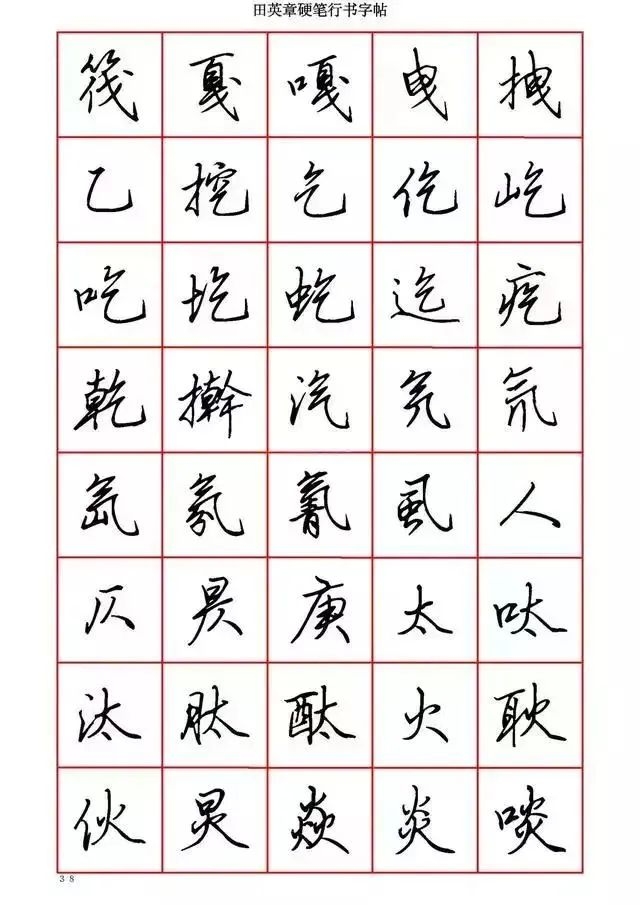 田英章硬笔行书字帖
筏 戛 嘎 曳 拽
乙 挖 乞 仡 屹
吃 圪 虼 迄 疙
乾 擀 汽
氙 氛 氰 虱 人
仄 昃 庚 太 呔
汰 肽 酞 火 耿
伙 炅 焱 炎 啖
38